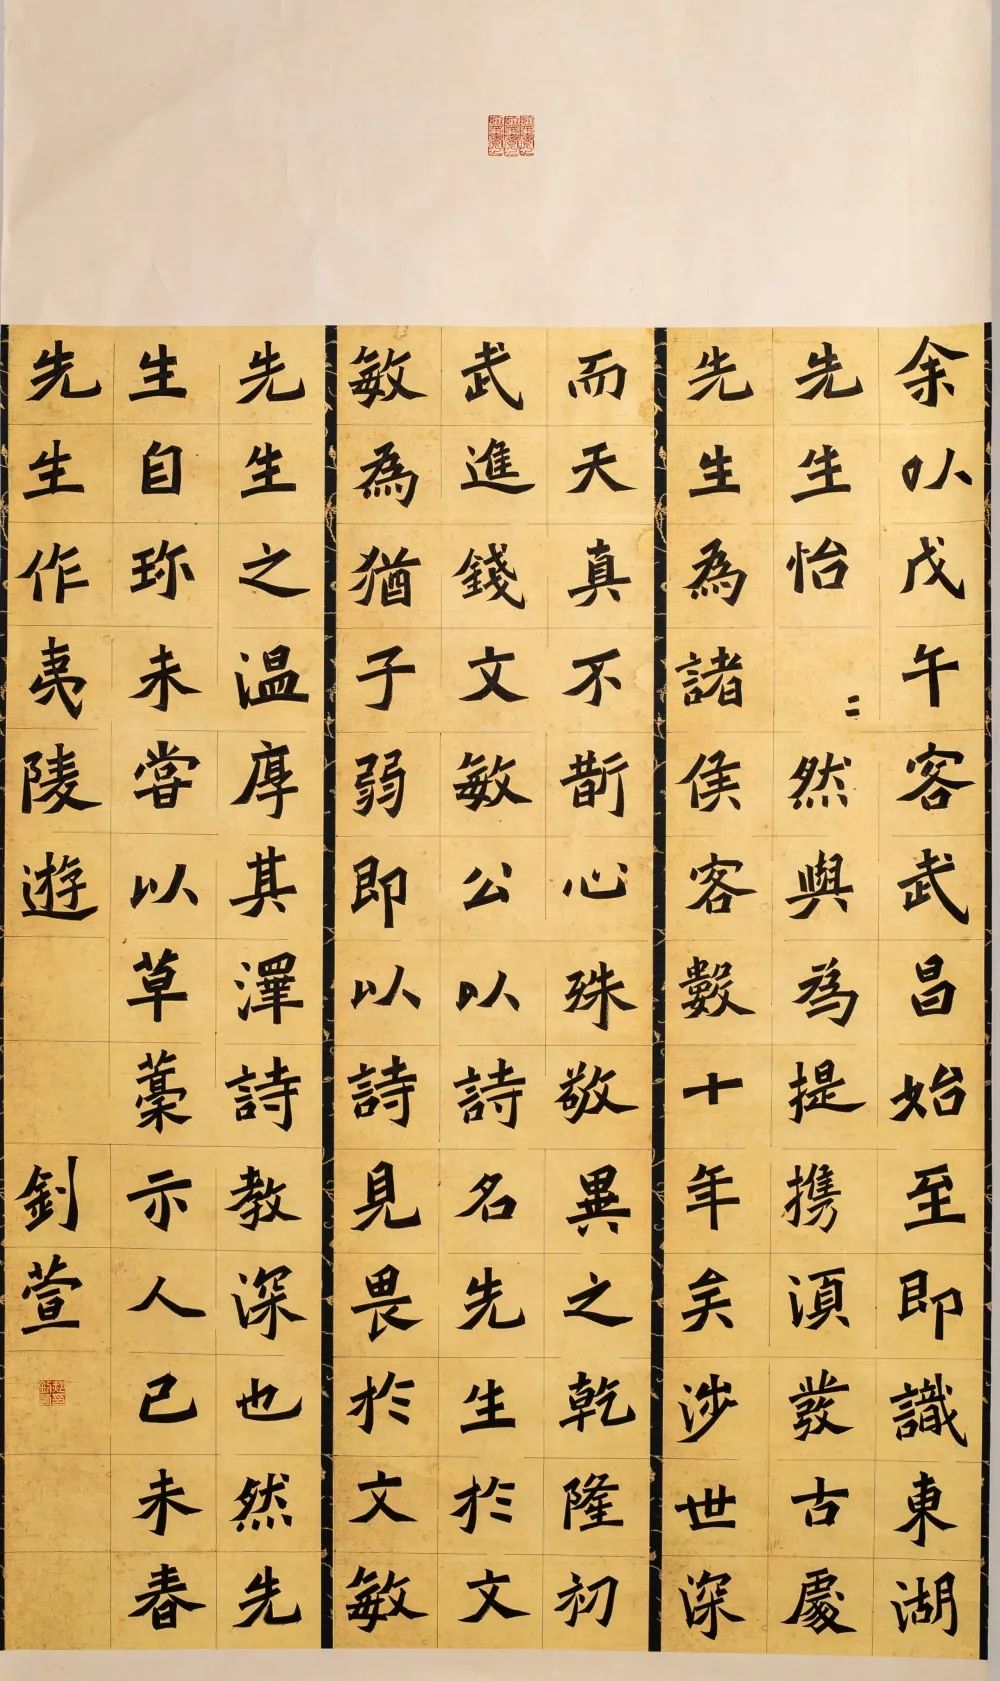 余以戊午客武昌始至即識東湖
先生怡二然與為提攜須發古處
先生為諸侯客數十年矣涉世深
而天真不斲心殊敬異之乾隆初
武進錢文敏公以詩名先生於文
敏為猶子弱即以詩見畏於文敏
先生之温厚其澤詩教深也然先
生自珎未嘗以草藁示人己未春
先生作夷陵遊
釗萱